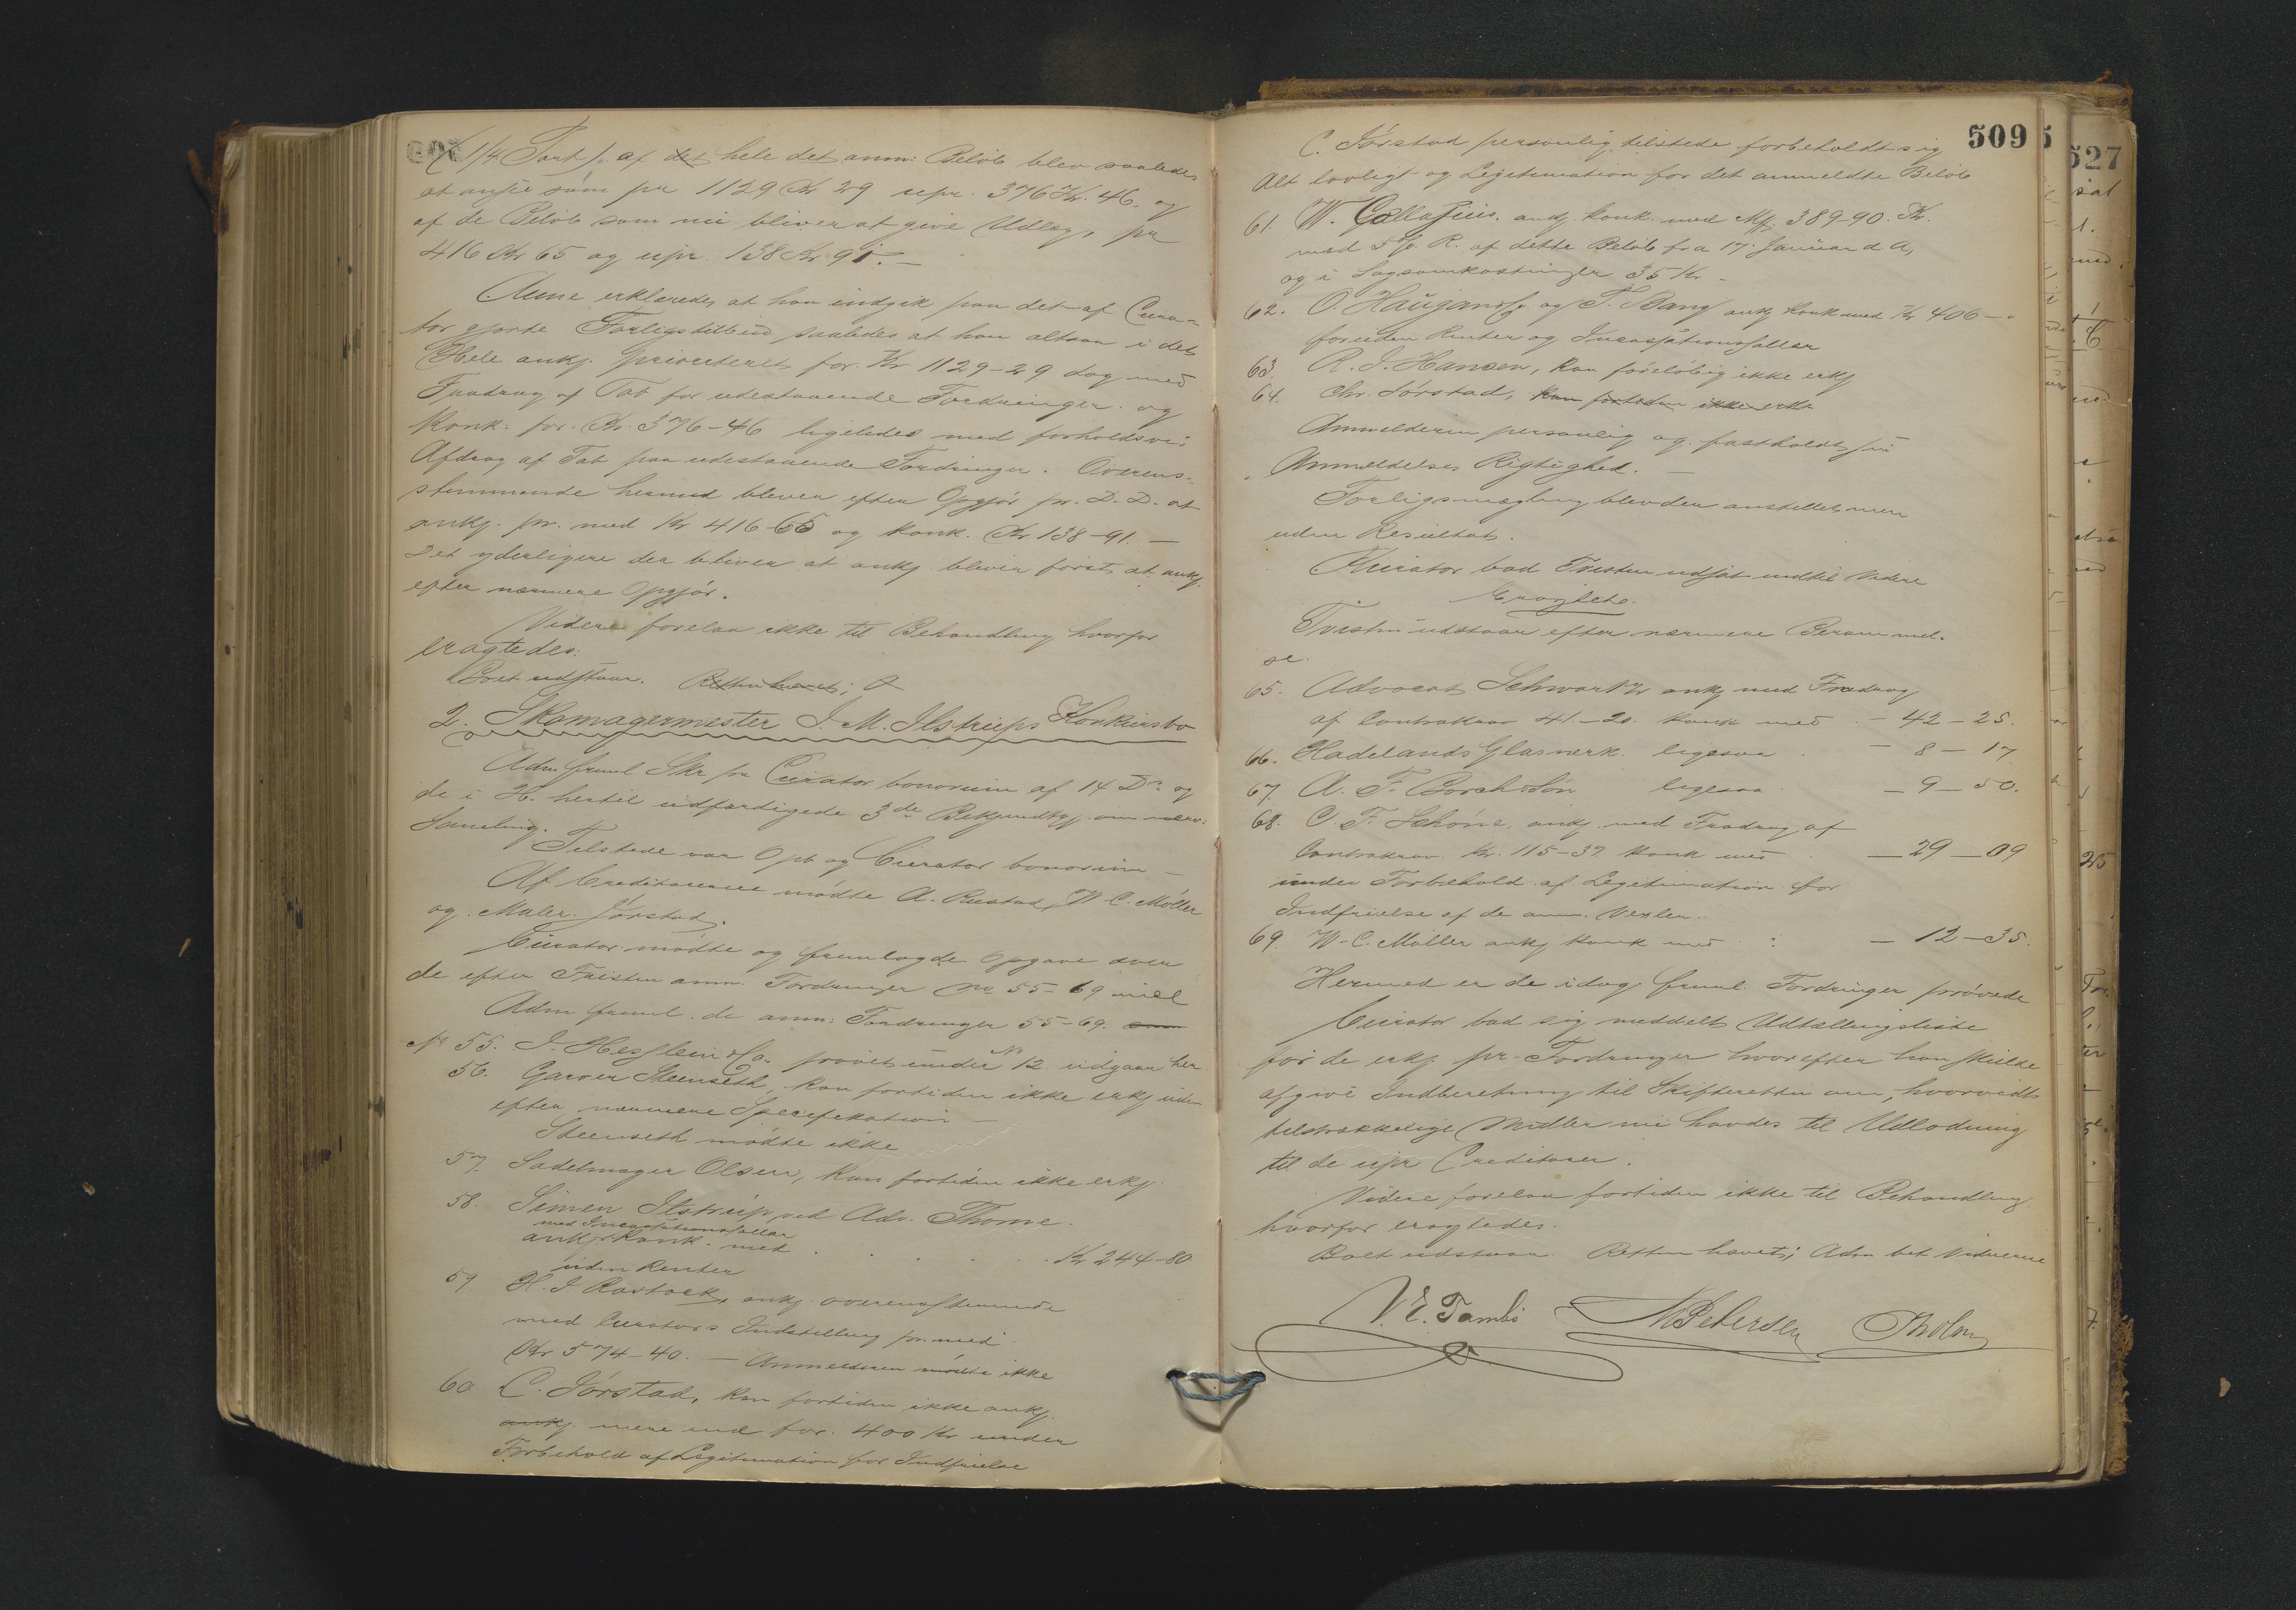 (1/4 Part) af det hele det anm: Beløb blev saaledes
at ansee som pr 1129 Kr 29 upr. 376 Kr. 46. og
af de Beløb som nu bliver at give Udlæg, pr
416 Kr 65 og upr. 138 Kr 91. —
Aune erklæredes at han indgik paa det af Cura-
tor gjorte Forligstilbud saaledes at han altsaa i det
Hele ankj. prioriteret for Kr 1129-29 dog med
Fradrag af Tab for udestaaende Fordringer og
Konk. for Kr. 376-46 ligeledes med forholdsvi:
Afdrag af Tab paa udestaaende Fordringer. Overens-
stemmende hermed bliver efter Opgjør pr. D.D. at
ankj. pr. med Kr 416-65 og konk. Kr 138-91. —
Det yderligere der bliver at ankj. bliver først at ankj.
efter nærmere Opgjør.
Videre forelaa ikke til Behandling hvorfor
eragtedes:
Boet udstaar. Retten hævet;
2. Skomagermester J. M. Ilstrups Konkursbo
Adm freml Skr fra Curator bonorum af 14 Ds og
de i H. hertil udfærdigede 3de Bekjendtgj. om nærv:
Samling.
Tilstede var Opb og Curator bonorum —
Af Creditorerne mødte A. Rustad, W. C. Møller
og Maler Jørstad.
Curator mødte og fremlagde Opgave over
de efter Fristen anm. Fordringer No 55-69 incl
Adm freml. de anm: Fordringer 55-69. som
No 55. J. Hesslein & Co. prøvet under No 12. udgaar her
56. Garver Steenseth, kan fortiden ikke erkj uden
efter nærmere Specifikation —
Steenseth mødte ikke
57. Sadelmager Olsen, kan fortiden ikke erkj
58. Simen Ilstrup ved Adv. Thorne.
med Incassationssallær
ankj. Konk. med . . . . . Kr 244-80
uden Renter
59 H. J. Rastock, ankj. overensstemmende
med Curators Indstilling pr. med
Kr 574-40. — Anmelderen mødte ikke
60. C. Jørstad, kan fortiden ikke ankj.
ankj. mere end for. 400 Kr under
Forbehold af Legitimation for Indfrielse
509
C. Jørstad personlig tilstede forbeholdt sig
Alt lovligt og Legitimation for det anmeldte Beløb
61. W. ankj. konk. med 389-90. Kr.
med 5% R. af dette Beløb fra 17. Januar d. A,
og i Sagsomkostninger 35 Kr —
62. O. og T. Bang ankj konk med Kr 406 — "
foruden Renter og Incassationssallær
63 R. J. Hansen, kan foreløbig ikke erkj
64. Chr. Jørstad, kan fortiden ikke erkj.
Anmelderen personlig og fastholdt sin
Anmeldelses Rigtighed. —
Forligsmægling blev den anstillet men
uden Resultat.
Curator bad Tvisten udsat indtil Videre
Eragtede.
Tvisten udstaar efter nærmere Berammel-
se.
65. Advocat Schwartz ankj med Fradrag
af Contrakrav 41-20. konk med — 42-25.
66. Hadelands Glasværk. ligesaa — 8-17
67. A. F. Borch & Søn ligesaa — 9-50.
68. C. F. Schøne, ankj med Fradrag af
Contrakrav Kr. 115-37 konk med — 29-09
under Forbehold af Legitimation for
Indfrielse af de anm. Vexler.
69. W. C. Møller ankj konk med : — 12-35.
Hermed er de idag freml. Fordringer prøvede
Curator bad sig meddelt Udtællingsliste
for de erkj pr. Fordringer hvorefter han skulde
afgive Indberetning til Skifteretten om, hvorvidt
tilstrækkelige Midler nu havdes til Udlodning
til de upr Creditorer.
Videre forelaa fortiden ikke til Behandling
hvorfor eragtedes.
Boet udstaar. Retten hævet; Adm bet Vidnerne
N. Petersen
527